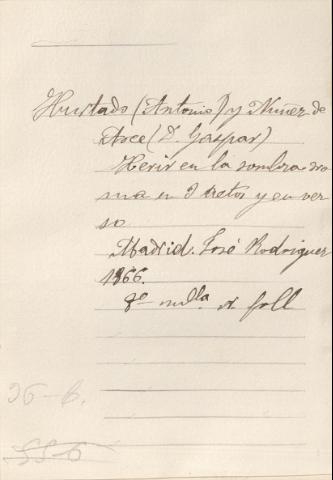 Hurtado (Antonio) y Nuñez de
Arce (D. Gaspar)
Herir en la sombra dra
ma en 3 actos y en ver
so
Madrid. José Rodriguez
1866.
8º mlla. foll
36-6.
55-6